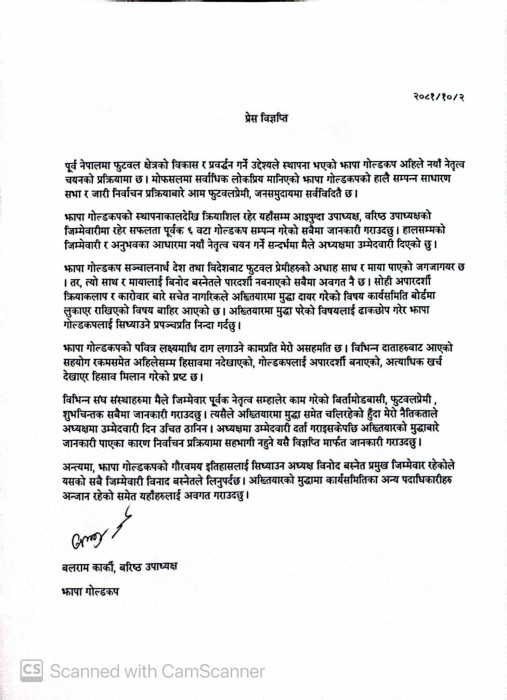 २०८१/१०/२
प्रेस विज्ञप्ति
पूर्व नेपालमा फुटवल क्षेत्रको विकास र प्रवर्द्धन गर्ने उद्देश्यले स्थापना भएको झापा गोल्डकप अहिले नयाँ नेतृत्व
चयनको प्रक्रियामा छ । मोफसलमा सर्वाधिक लोकप्रिय मानिएको झापा गोल्डकपको हालै सम्पन्न साधारण
सभा र जारी निर्वाचन प्रक्रियाबारे आम फुटवलप्रेमी, जनसमुदायमा सर्वविदितै छ ।
झापा गोल्डकपको स्थापनाकालदेखि क्रियाशिल रहेर यहाँसम्म आइपुग्दा उपाध्यक्ष, वरिष्ठ उपाध्यक्षको
जिम्मेवारीमा रहेर सफलता पूर्वक ६ वटा गोल्डकप सम्पन्न गरेको सबैमा जानकारी गराउदछु । हालसम्मको
जिम्मेवारी र अनुभवका आधारमा नयाँ नेतृत्व चयन गर्ने सन्दर्भमा मैले अध्यक्षमा उम्मेदवारी दिएको छु ।
झापा गोल्डकप सञ्चालनार्थ देश तथा विदेशबाट फुटवल प्रेमीहरुको अथाह साथ र माया पाएको जगजागयर छ
। तर, त्यो साथ र मायालाई बिनोद बस्नेतले पारदर्शी नबनाएको सबैमा अवगत नै छ । सोही अपारदर्शी
क्रियाकलाप र कारोवार बारे सचेत नागरिकले अख्तियारमा मुद्धा दायर गरेको विषय कार्यसमिति बोर्डमा
लुकाएर राखिएको विषय बाहिर आएको छ । अख्तियारमा मुद्धा परेको विषयलाई ढाकछोप गरेर झापा
गोल्डकपलाई सिध्याउने प्रपञ्चप्रति निन्दा गर्दछु ।
झापा गोल्डकपको पवित्र लक्ष्यमाथि दाग लगाउने कामप्रति मेरो असहमति छ । विभिन्न दाताहरुवाट आएको
सहयोग रकमसमेत अहिलेसम्म हिसावमा नदेखाएको, गोल्डकपलाई अपारदर्शी बनाएको, अत्याधिक खर्च
देखाएर हिसाव मिलान गरेको प्रष्ट छ ।
विभिन्न संघ संस्थाहरुमा मैले जिम्मेवार पूर्वक नेतृत्व सम्हालेर काम गरेको बिर्तामोडबासी, फुटवलप्रेमी ,
शुभचिन्तक सबैमा जानकारी गराउदछु । त्यसैले अख्तियारमा मुद्धा समेत चलिरहेको हुँदा मेरो नैतिकताले
अध्यक्षमा उम्मेदवारी दिन उचित ठानिन । अध्यक्षमा उम्मेदवारी दर्ता गराइसकेपछि अख्तियारको मुद्धाबारे
जानकारी पाएका कारण निर्वाचन प्रक्रियामा सहभागी नहुने यसै विज्ञप्ति मार्फत जानकारी गराउदछु ।
अन्त्यमा, झापा गोल्डकपको गौरवमय इतिहासलाई सिध्याउन अध्यक्ष विनोद बस्नेत प्रमुख जिम्मेवार रहेकोले
यसको सबै जिम्मेवारी विनाद बस्नेतले लिनुपर्दछ । अख्तियारको मुद्धामा कार्यसमितिका अन्य पदाधिकारीहरु
अन्जान रहेको समेत यहाँहरुलाई अवगत गराउदछु ।
बलराम कार्की, बरिष्ठ उपाध्यक्ष
झापा गोल्डकप
CS Scanned with CamScanner